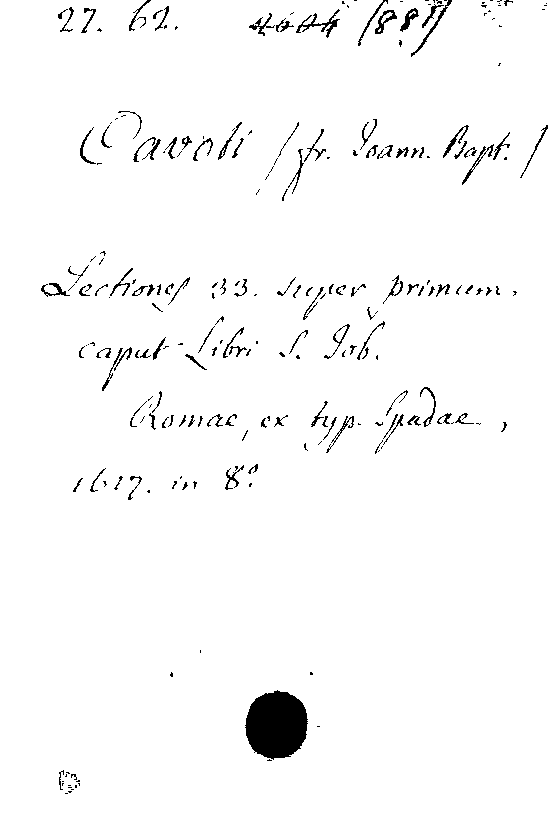 27. 62. (881)
Cavoti / fr. Ioann. Bapt. /
Lectiones 33. super primum
caput Libri S. Iob.
Romae, ex typ. Spadae,
1627. in 8º